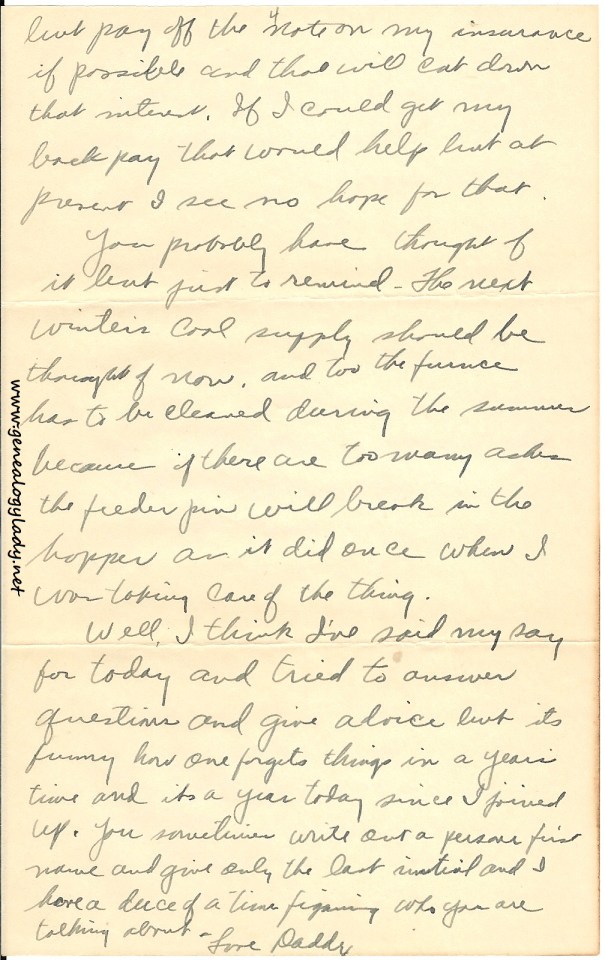 but pay off the Note on my insurance
if possible and that will cut down
that interest. If I could get my
back pay that would help but at
present I see no hope for that.
You probably have thought of
it but just to remind - The next
winters coal supply should be
thought of now, and too the furnce
has to be cleaned during the summer
because if there are too many ashes
the feeder pin will break in the
hopper as it did once when I
was taking care of the thing.
Well, I think I've said my say
for today and tried to answer
questions and give advice but its
funny how one forgets things in a years
time and its a year today since I joined
up. You sometimes write out a persons first
name and give only the last initial and I
have a duce of a time figuring who you are
talking about - Love Daddy
www.genealogylady.net